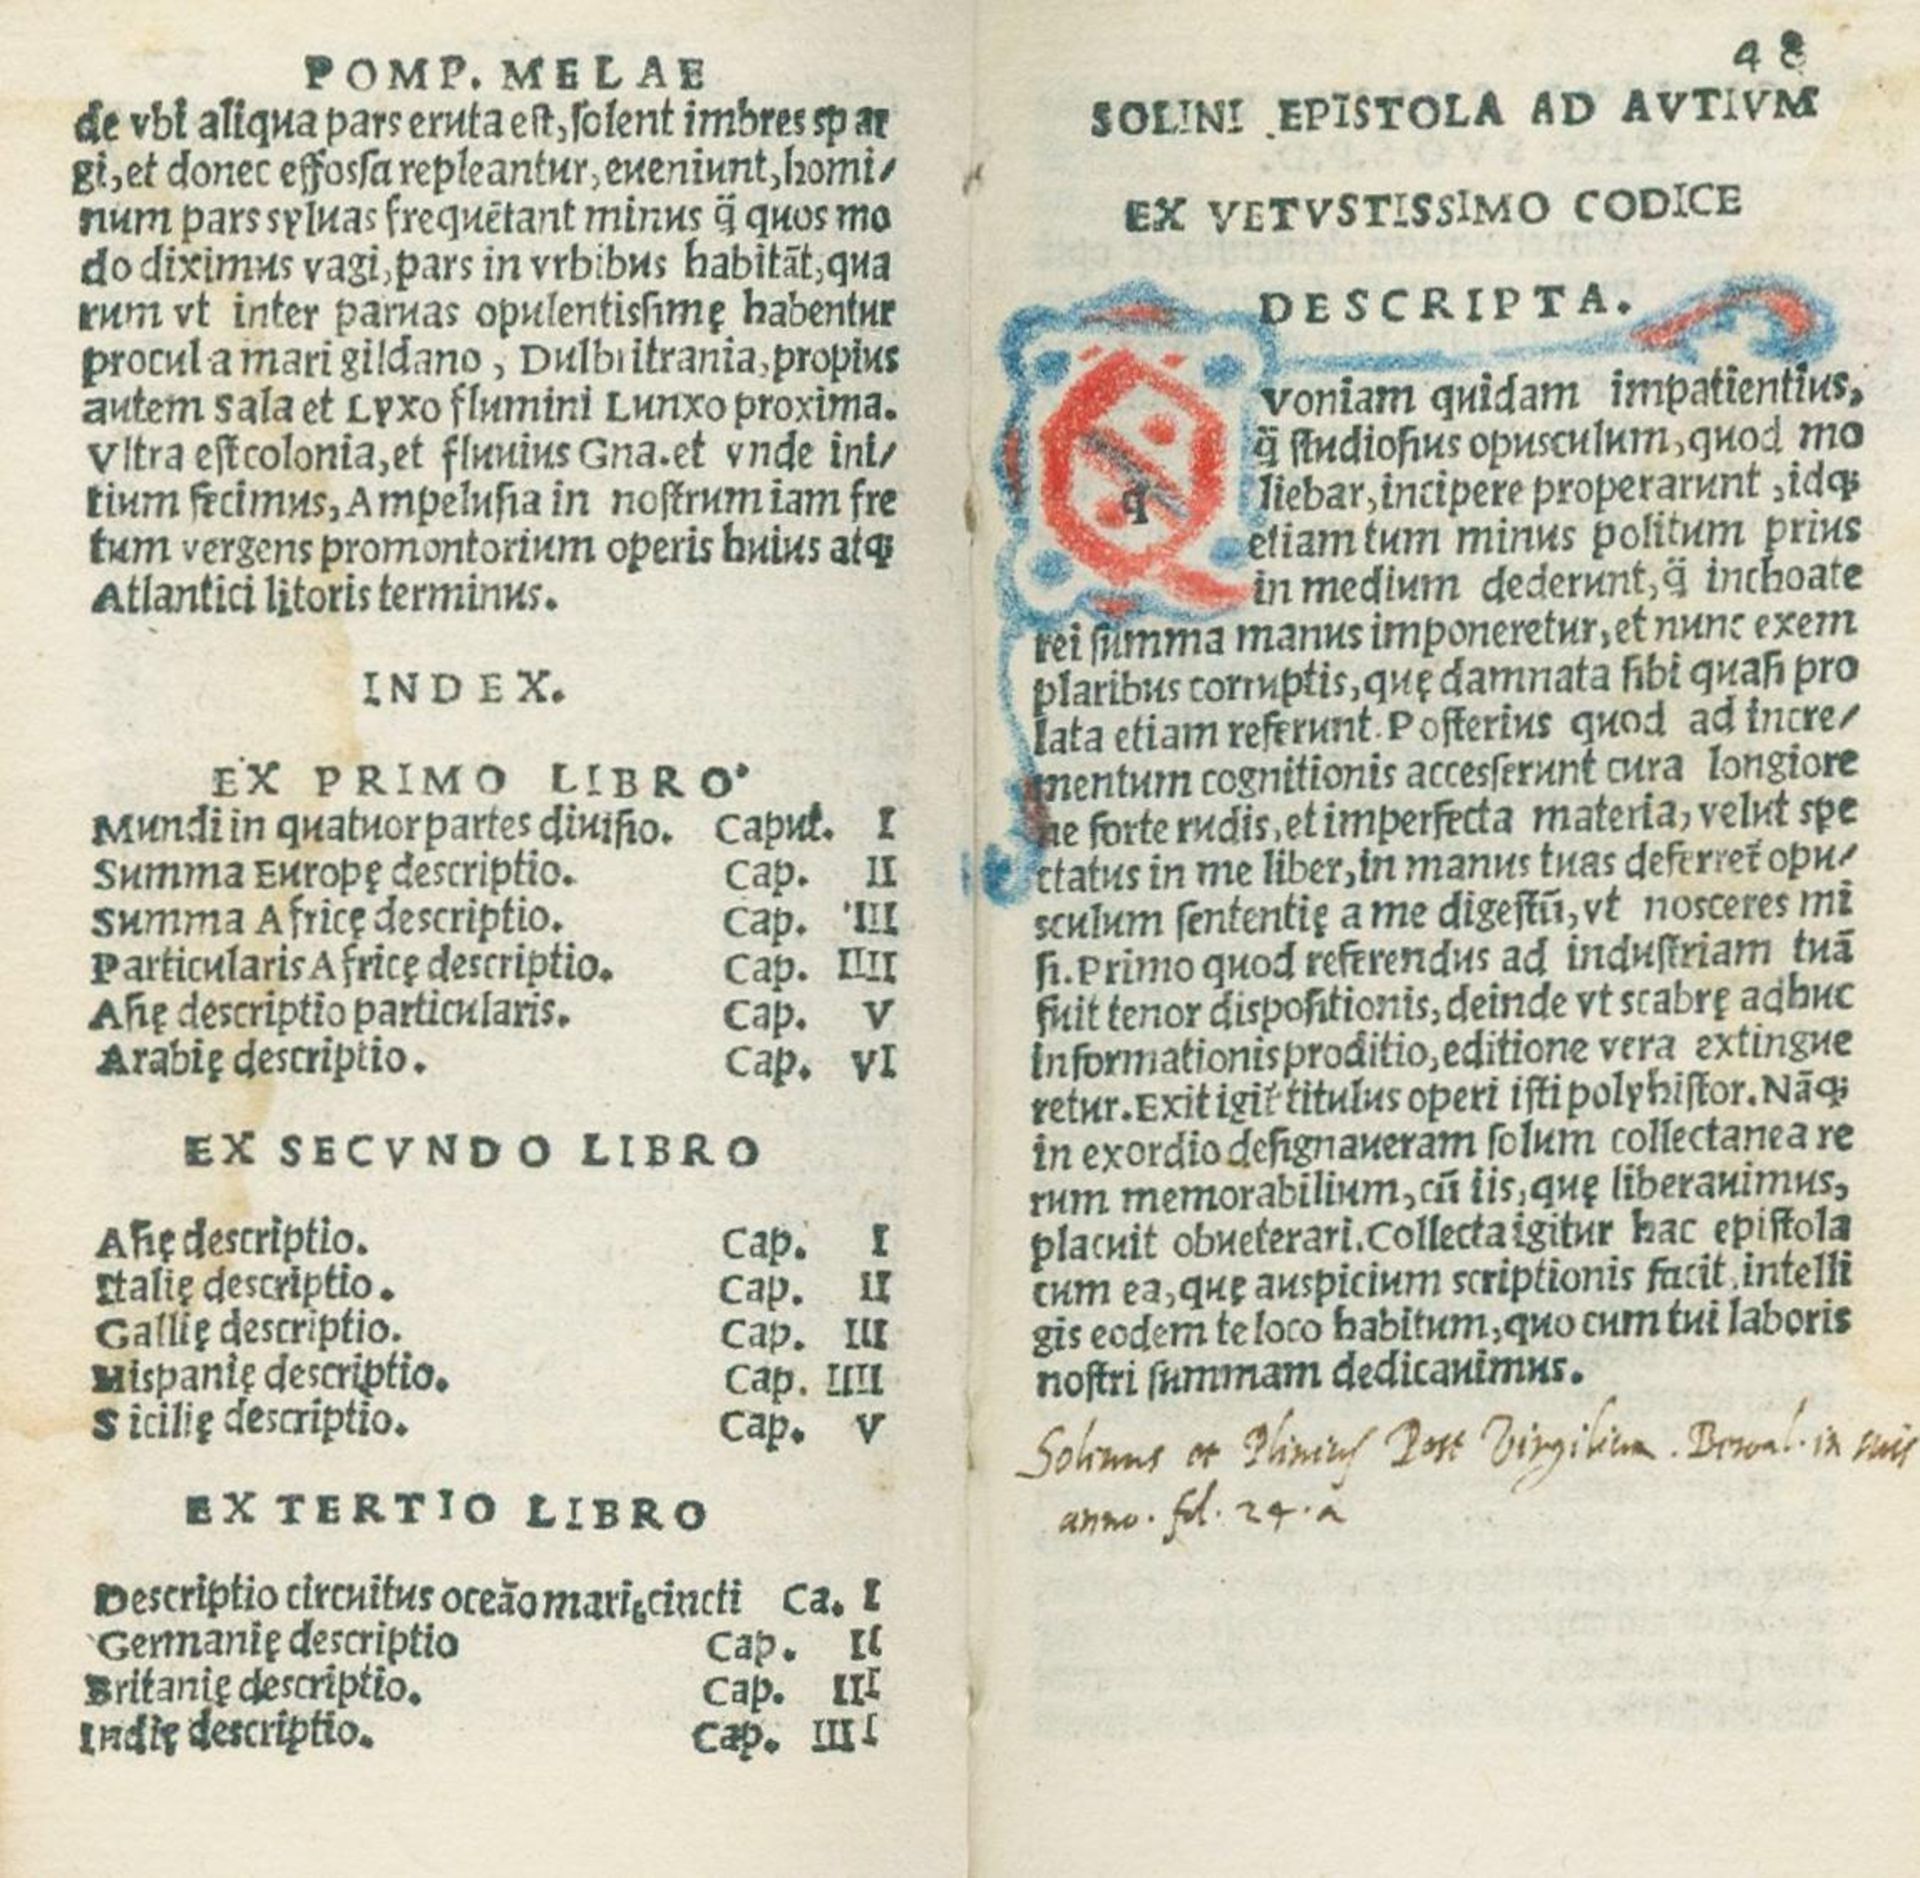 POMP. MELAE
de vbi aliqua pars eruta est, solent imbres sp ar
gi, et donec effossa repleantur, eueniunt, homi/
num pars syluas frequētant minus q̄ quos mo
do diximus vagi, pars in vrbibus habitāt, qua
rum vt inter paruas opulentissimę habentur
procul a mari gildano, Dulbritrania, propius
autem Sala et Lyxo flumini Lunxo proxima.
Vltra est colonia, et fluuius Gna. et vnde ini/
tium fecimus, Ampelusia in nostrum iam fre
tum vergens promontorium operis huius atq;
Atlantici litoris terminus.
INDEX.
EX PRIMO LIBRO
Mundi in quatuor partes diuisio. Caput. I
Summa Europę descriptio. Cap. II
Summa Africę descriptio. Cap. III
Particularis Africę descriptio. Cap. IIII
Asię descriptio particularis. Cap. V
Arabię descriptio. Cap. VI
EX SECVNDO LIBRO
Asię descriptio. Cap. I
Italię descriptio. Cap. II
Gallię descriptio. Cap. III
Hispanię descriptio. Cap. IIII
Sicilię descriptio. Cap. V
EX TERTIO LIBRO
Descriptio circuitus oceāo mariq; cincti Ca. I
Germanię descriptio Cap. II
Britanię descriptio. Cap. III
Indię descriptio. Cap. IIII
48
SOLINI EPISTOLA AD AVTIVM
EX VETVSTISSIMO CODICE
DESCRIPTA.
Q q voniam quidam impatientius,
q̄ studiosius opusculum, quod mo
liebar, incipere properarunt, idq;
etiam tum minus politum prius
in medium dederunt, q̄ inchoate
rei summa manus imponeretur, et nunc exem
plaribus corruptis, quę damnata sibi quasi pro
lata etiam referunt. Posterius quod ad incre/
mentum cognitionis accesserunt cura longiore
ne forte rudis, et imperfecta materia, velut spe
ctatus in me liber, in manus tuas deferret̄ opu/
sculum sententię a me digestū, vt nosceres mi
si. Primo quod referendus ad industriam tuā
fuit tenor dispositionis, deinde vt scabrę adhuc
informationis proditio, editione vera extingue
retur. Exit igit̄ titulus operi isti polyhistor. Nāq;
in exordio designaueram solum collectanea re
rum memorabilium, cū iis, quę liberauimus,
placuit obueterari. Collecta igitur hac epistola
cum ea, quę auspicium scriptionis facit, intelli
gis eodem te loco habitum, quo cum tui laboris
nostri summam dedicauimus.
Solinus et Plinius Post Virgilium. Beroal. in suis
anno. fol. 24. a